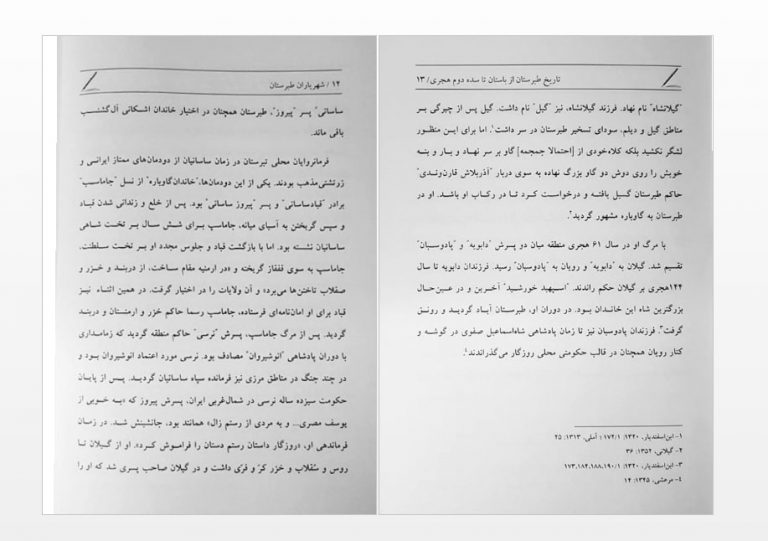 ۱۲ / شهریاران طبرستان
ساسانی" پسر "پیروز"، طبرستان همچنان در اختیار خاندان اشکانی آل‌گشنسب
باقی ماند.
فرمانروایان محلی تبرستان در زمان ساسانیان از دودمان‌های ممتاز ایرانی و
زرتشتی‌مذهب بودند. یکی از این دودمان‌ها،"خاندان‌گاوباره" از نسل "جاماسب"
برادر "قبادساسانی" و پسر "پیروز ساسانی" بود. پس از خلع و زندانی شدن قباد
و سپس گریختن به آسیای میانه، جاماسپ برای شش سال بر تخت شاهی
ساسانیان نشسته بود. اما با بازگشت قباد و جلوس مجدد او بر تخت سلطنت،
جاماسپ به سوی قفقاز گریخته و «در ارمنیه مقام ساخت، از دربند و خزر و
صقلاب تاختن‌ها می‌برد» و آن ولایات را در اختیار گرفت. در همین اثناء نیز
قباد برای او امان‌نامه‌ای فرستاده، جاماسپ رسما حاکم خزر و ارمنستان و دربند
گردید. پس از مرگ جاماسپ، پسرش "نرسی" حاکم منطقه گردید که زمامداری
با دوران پادشاهی "انوشیروان" مصادف بود. نرسی مورد اعتماد انوشیروان بود و
در چند جنگ در مناطق مرزی نیز فرمانده سپاه ساسانیان گردید. پس از پایان
حکومت سیزده ساله نرسی در شمال‌غربی ایران، پسرش پیروز که «به خوبی از
یوسف مصری... و به مردی از رستم زال» همانند بود، جانشینش شد. در زمان
فرماندهی او، «روزگار داستان رستم دستان را فراموش کرد». او از گیلان تا
روس و سقلاب و خزر کرّ و فرّی داشت و در گیلان صاحب پسری شد که او را
تاریخ طبرستان از باستان تا سده دوم هجری/ ۱۳
"گیلانشاه" نام نهاد. فرزند گیلانشاه، نیز "گیل" نام داشت. گیل پس از چیرگی بر
مناطق گیل و دیلم، سودای تسخیر طبرستان در سر داشت۱. اما برای این منظور
لشگر نکشید بلکه کلاه‌خودی از [احتمالا جمجمه] گاو بر سر نهاد و بار و بنه
خویش را روی دوش دو گاو بزرگ نهاده به سوی دربار "آذربلاش قارن‌وندی"
حاکم طبرستان گسیل یافته و درخواست کرد تا در رکاب او باشد. او در
طبرستان به گاوباره مشهور گردید۲.
با مرگ او در سال ۶۱ هجری منطقه میان دو پسرش "دابویه" و "پادوسبان"
تقسیم شد. گیلان به "دابویه" و رویان به "پادوسبان" رسید. فرزندان دابویه تا سال
۱۴۴هجری بر گیلان حکم راندند. "اسپهبد خورشید" آخرین و در عین‌حال
بزرگترین شاه این خاندان بود. در دوران او، طبرستان آباد گردید و رونق
گرفت۳. فرزندان پادوسبان نیز تا زمان پادشاهی شاه‌اسماعیل صفوی در گوشه و
کنار رویان همچنان در قالب حکومتی محلی روزگار می‌گذراندند۴.
۱- ابن‌اسفندیار، ۱۳۲۰: ۱۷۲/۱ ؛ آملی، ۱۳۱۳: ۲۵
۲- گیلانی، ۱۳۵۲: ۳۶
۳- ابن‌اسفندیار، ۱۳۲۰: ۱۷۳،۱۸۴،۱۸۸،۱۹۰/۱
۴- مرعشی، ۱۳۴۵: ۱۴